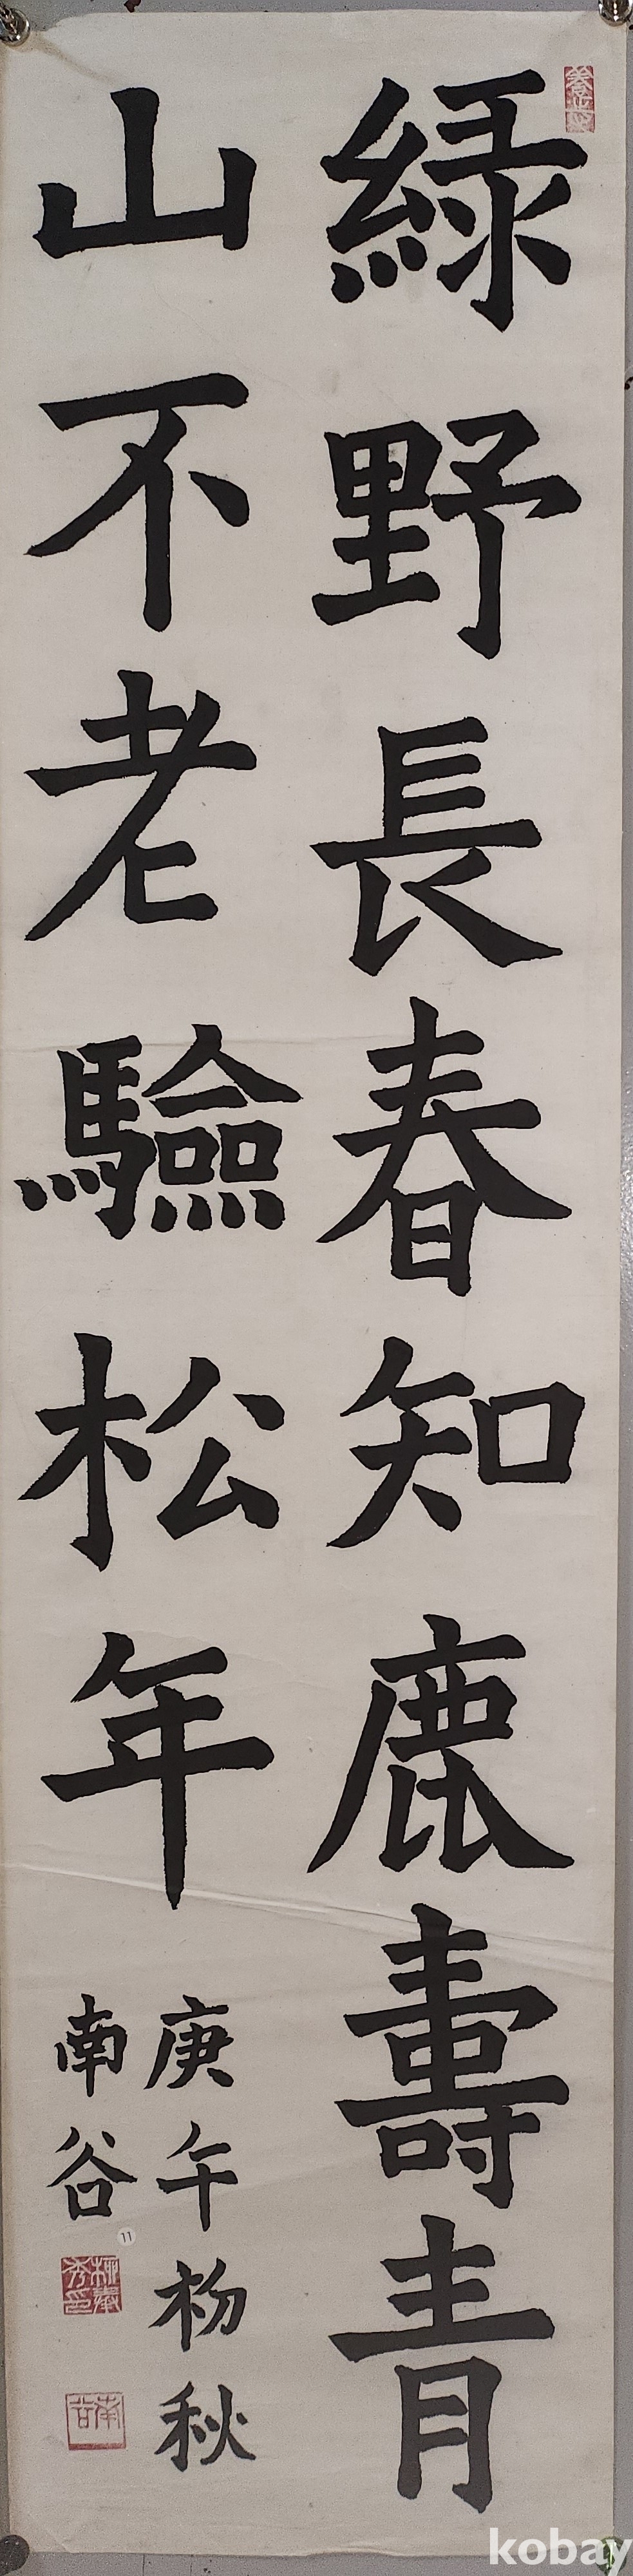 綠野長春知鹿壽青
山不老驗松年
庚午枌秋
南谷
11
南谷
kobay